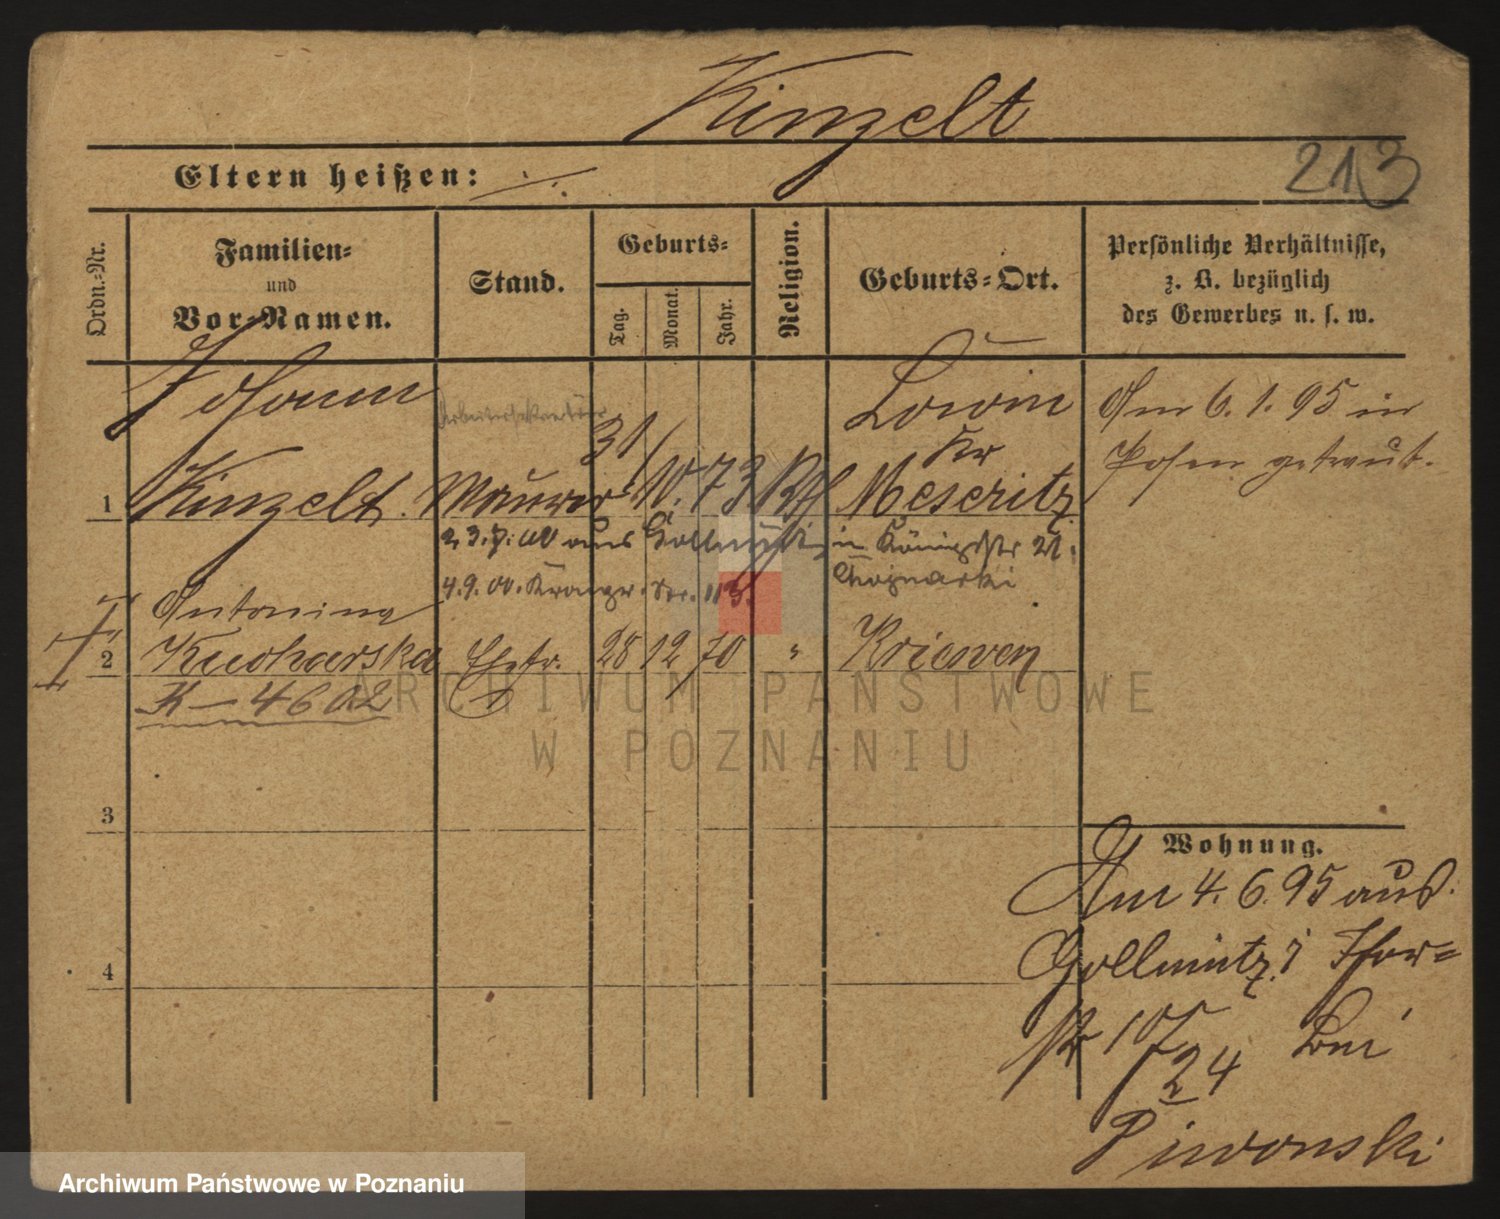 Kinzelt
213
Eltern heißen: ·/·
Ordn.-Nr.
Familien-
und
Vor-Namen.
Stand.
Geburts-
Tag.
Monat.
Jahr.
Religion.
Geburts-Ort.
Persönliche Verhältnisse,
z. B. bezüglich
des Gewerbes u. s. w.
Johann
Arbeitersekretär
Lowin
Am 6. 1. 95 in
31/
Kr
Posen getraut.
1 Kinzelt. Maurer 10. 73 Kth Meseritz
23. 7. 00 aus Gollmütz in Königstr 21.
4. 9. 00. Str. 113. Chojnacki
Antonina
2 Kucharska Ehefr. 28 12 70 " Kriewen
K – 4602
ARCHIWUM PAŃSTWOWE
W POZNANIU
3
Wohnung.
Am 4. 6. 95 aus
4
Gollmütz i
str 10/ bei
24
Piwonski
Archiwum Państwowe w Poznaniu